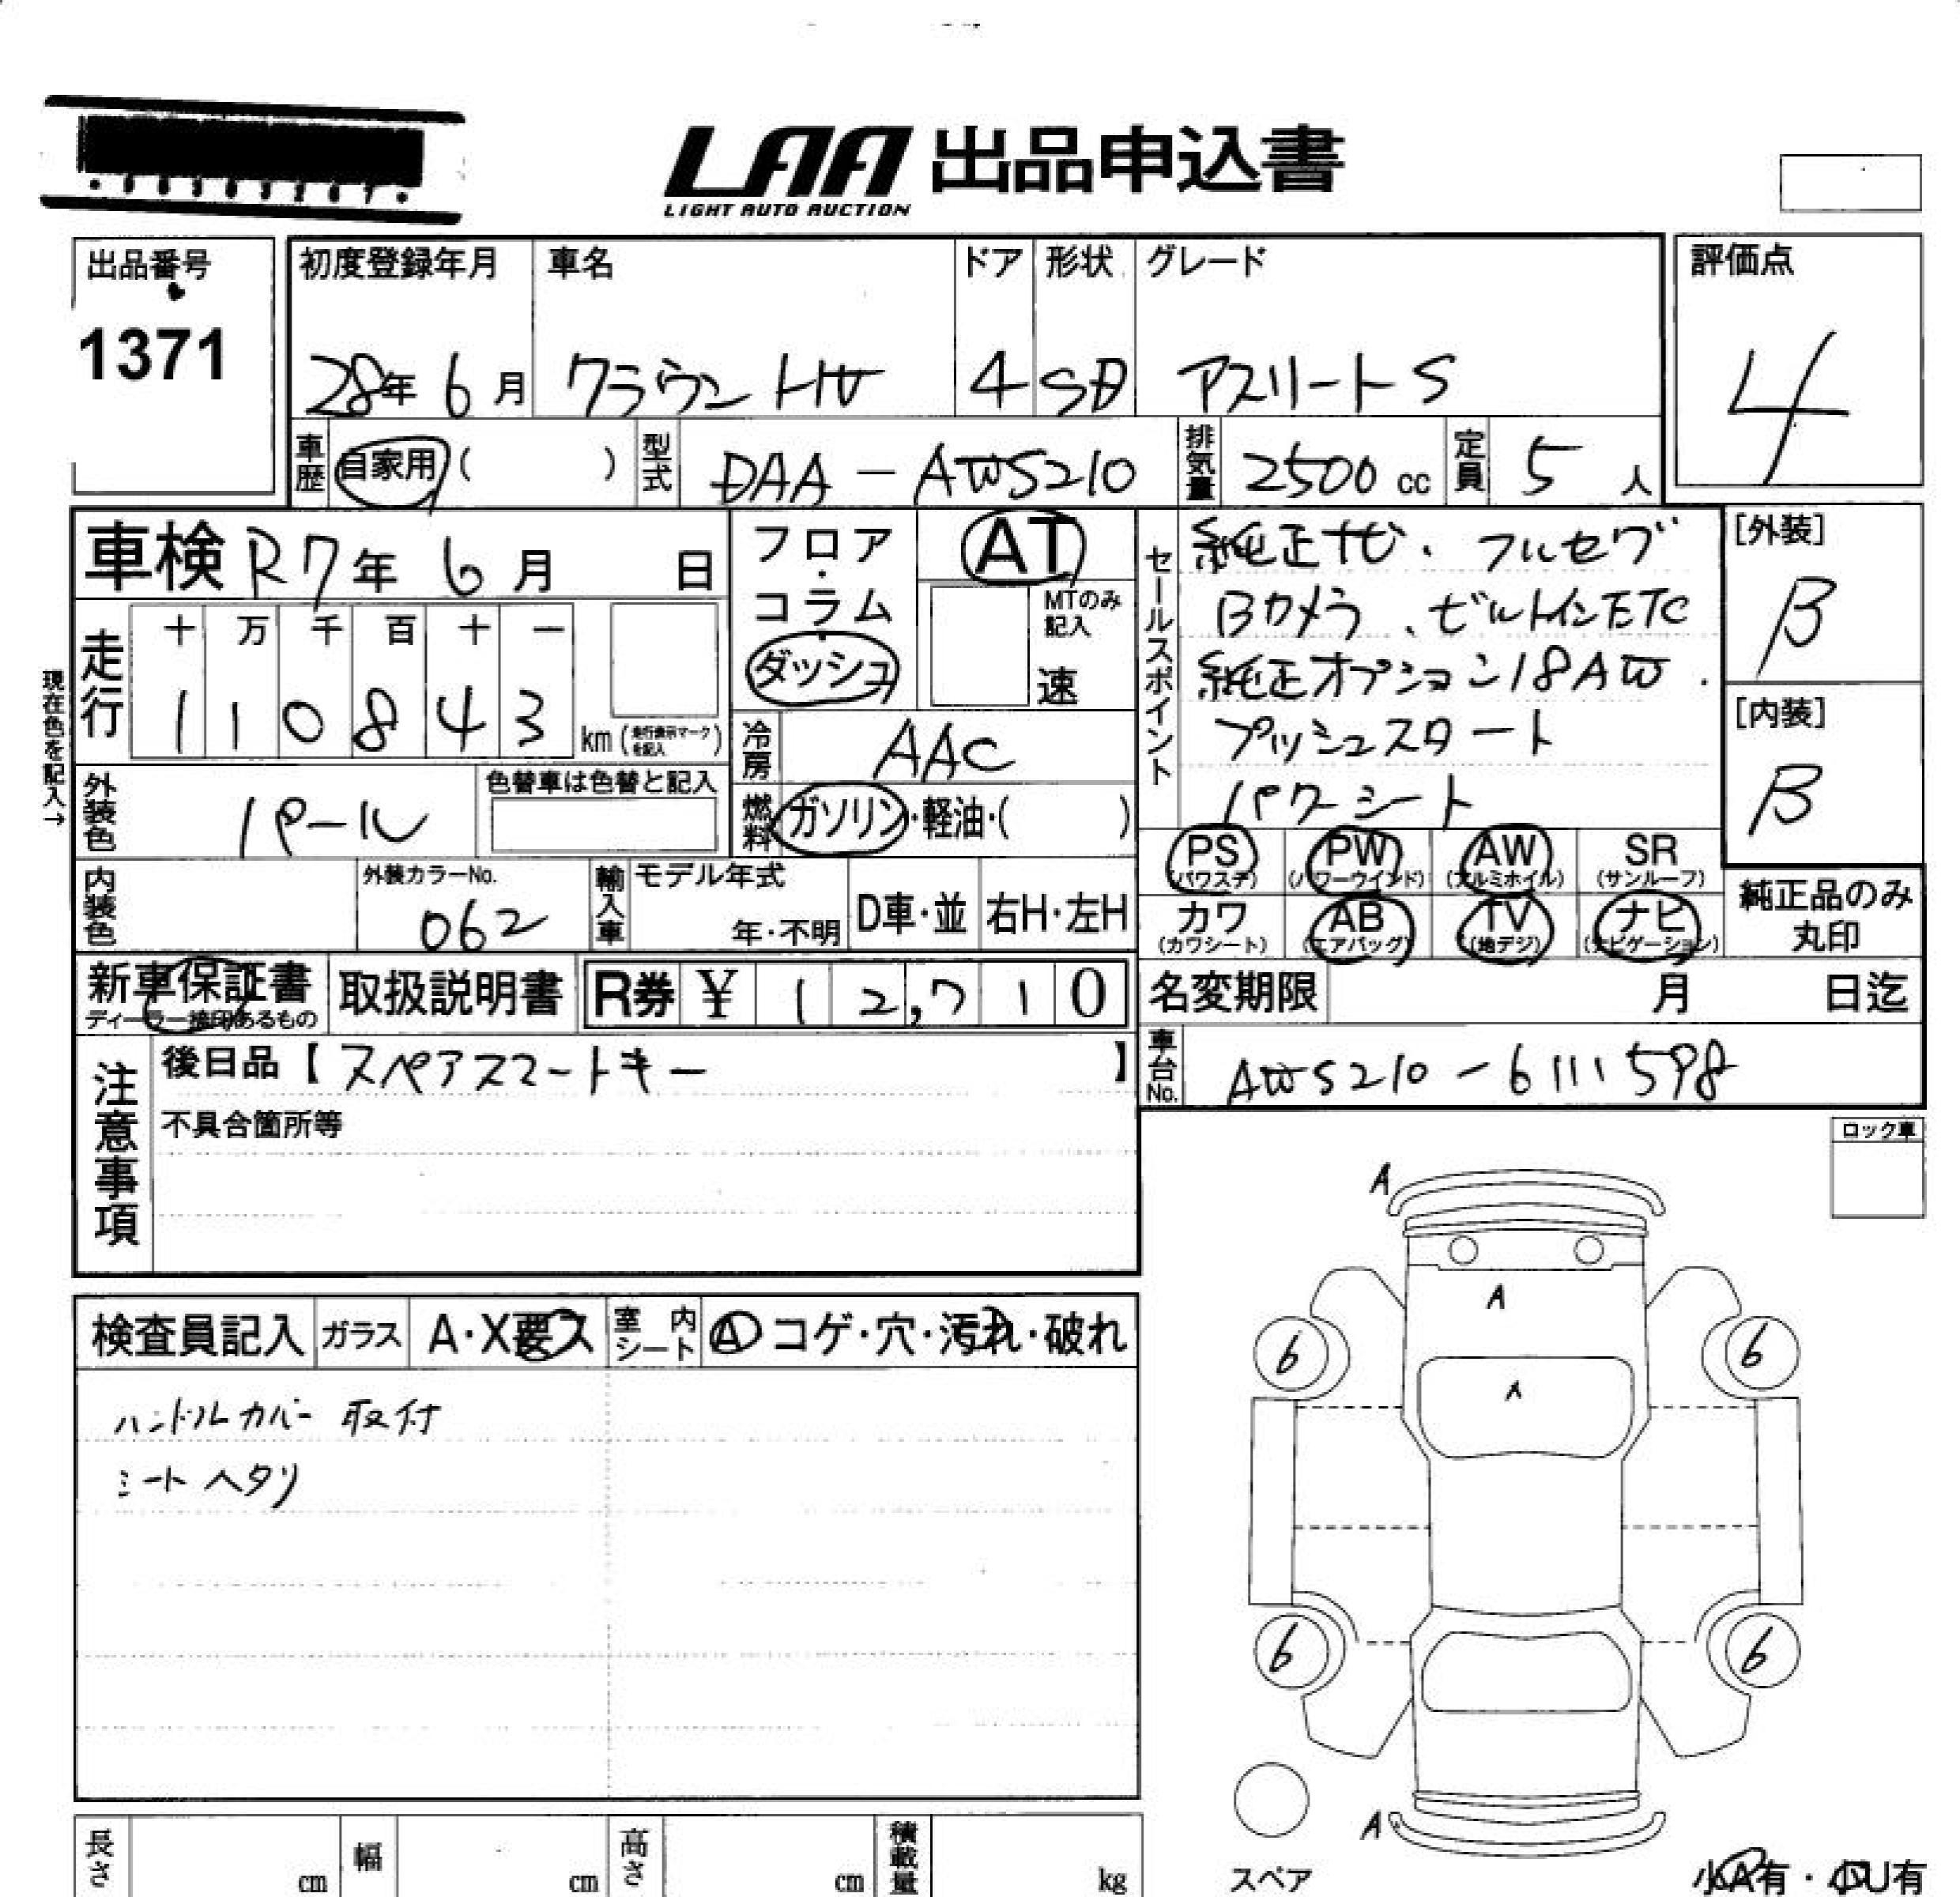 LAA 出品申込書
LIGHT AUTO AUCTION
出品番号
1371
初度登録年月
28年 6月
車名
クラウンHV
ドア
4
形状
SD
グレード
アスリートS
評価点
4
車歴 自家用 ( )
型式 DAA-AWS210
排気量 2500 cc
定員 5 人
車検 R7年 6月 日
フロア・コラム・ダッシュ
AT
MTのみ記入
速
走行
十 万 千 百 十 一
1 1 0 8 4 3 km (走行表示マークを記入)
現在色を記入→
冷房 AAC
外装色 パール
色替車は色替と記入
燃料 ガソリン・軽油・( )
内装色
外装カラーNo.
062
輸入車 モデル年式
年・不明
D車・並 右H・左H
セールスポイント
純正ナビ、フルセグ
Bカメラ、ビルトインETC
純正オプション18AW.
プッシュスタート
パワーシート
[外装]
B
[内装]
B
PS (パワステ)
PW (パワーウインド)
AW (アルミホイル)
SR (サンルーフ)
カワ (カワシート)
AB (エアバッグ)
TV (地デジ)
ナビ (ナビゲーション)
純正品のみ丸印
新車保証書
ディーラー捺印あるもの
取扱説明書
R券 ¥ 12,710
名変期限 月 日迄
注意事項
後日品【スペアスマートキー】
不具合箇所等
車台No. AWS210-6111598
ロック車
検査員記入
ガラス A・X要ス
室内シート A コゲ・穴・汚れ・破れ
ハンドルカバー取付
シートヘタリ
A
A
A
6 6
6 6
A
スペア
小A有・小U有
長さ cm
幅 cm
高さ cm
積載量 kg